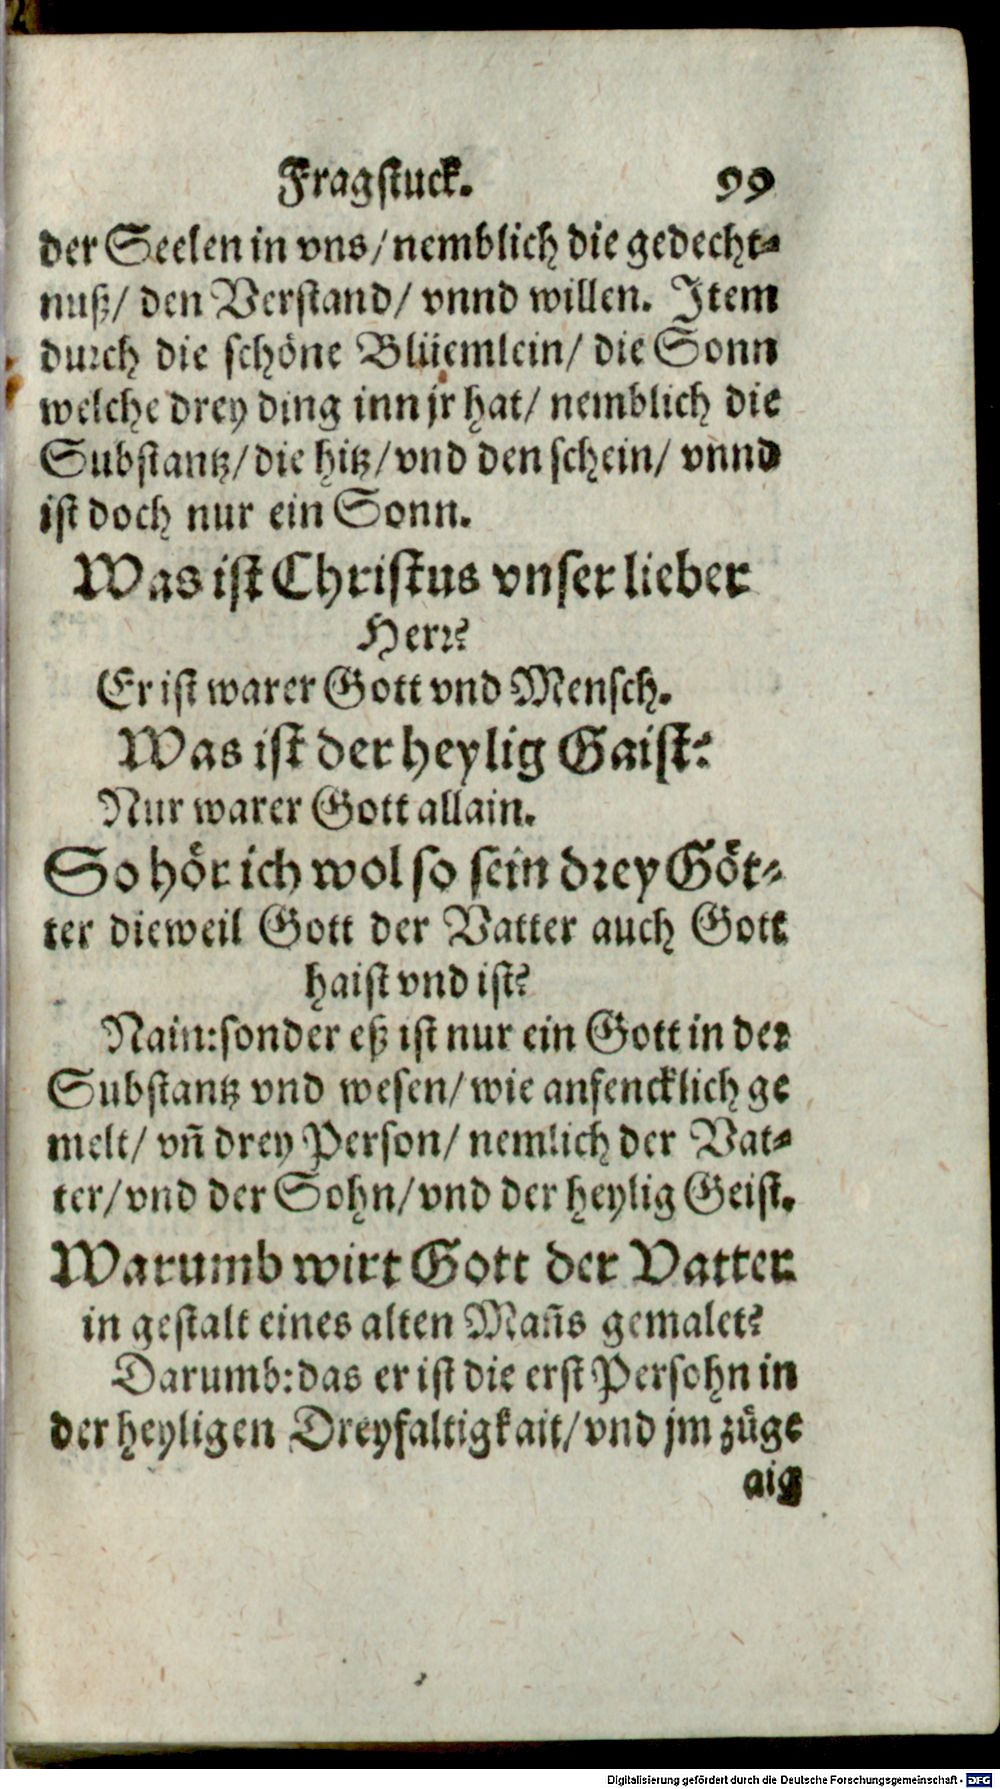 Fragstuck. 99
der Seelen in vns/ nemblich die gedecht-
nuß/ den Verstand/ vnnd willen. Item
durch die schöne Blüemlein/ die Sonn
welche drey ding inn jr hat/ nemblich die
Substantz/ die hitz/ vnd den schein/ vnnd
ist doch nur ein Sonn.
Was ist Christus vnser lieber
Herr?
Er ist warer Gott vnd Mensch.
Was ist der heylig Gaist?
Nur warer Gott allain.
So hör ich wol so sein drey Göt-
ter dieweil Gott der Vatter auch Gott
haist vnd ist?
Nain: sonder eß ist nur ein Gott in der
Substantz vnd wesen/ wie anfencklich ge
melt/ vñ drey Person/ nemlich der Vat-
ter/ vnd der Sohn/ vnd der heylig Geist.
Warumb wirt Gott der Vatter
in gestalt eines alten Mañs gemalet?
Darumb: das er ist die erst Persohn in
der heyligen Dreyfaltigkait/ vnd jm züge
aig
Digitalisierung gefördert durch die Deutsche Forschungsgemeinschaft - DFG